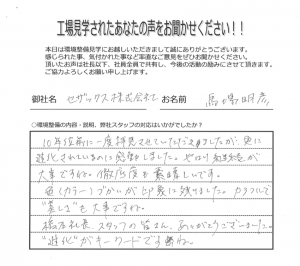 工場見学されたあなたの声をお聞かせください！！
本日は環境整備見学にお越しいただきまして誠にありがとうございます。
感じられた事、気付かれた事など率直なご意見をぜひお聞かせください。
頂いたお声は社長以下、社員全員で共有し、今後の活動の励みにさせて頂きます。
ご協力よろしくお願い申し上げます。
御社名 セザックス株式会社 お名前 馬場明彦
○環境整備の内容・説明、弊社スタッフの対応はいかがでしたか？
10年位前に一度拝見させていただきましたが、更に
進化されているのに感動しました。やはり継続が
大事ですね。徹底度も素晴しいです。
色(カラー)づかいが印象に残りました。カラフルで
"楽しさ"も大事ですね。
社長、スタッフの皆さん、ありがとうございました。
"進化"がキーワードですね。